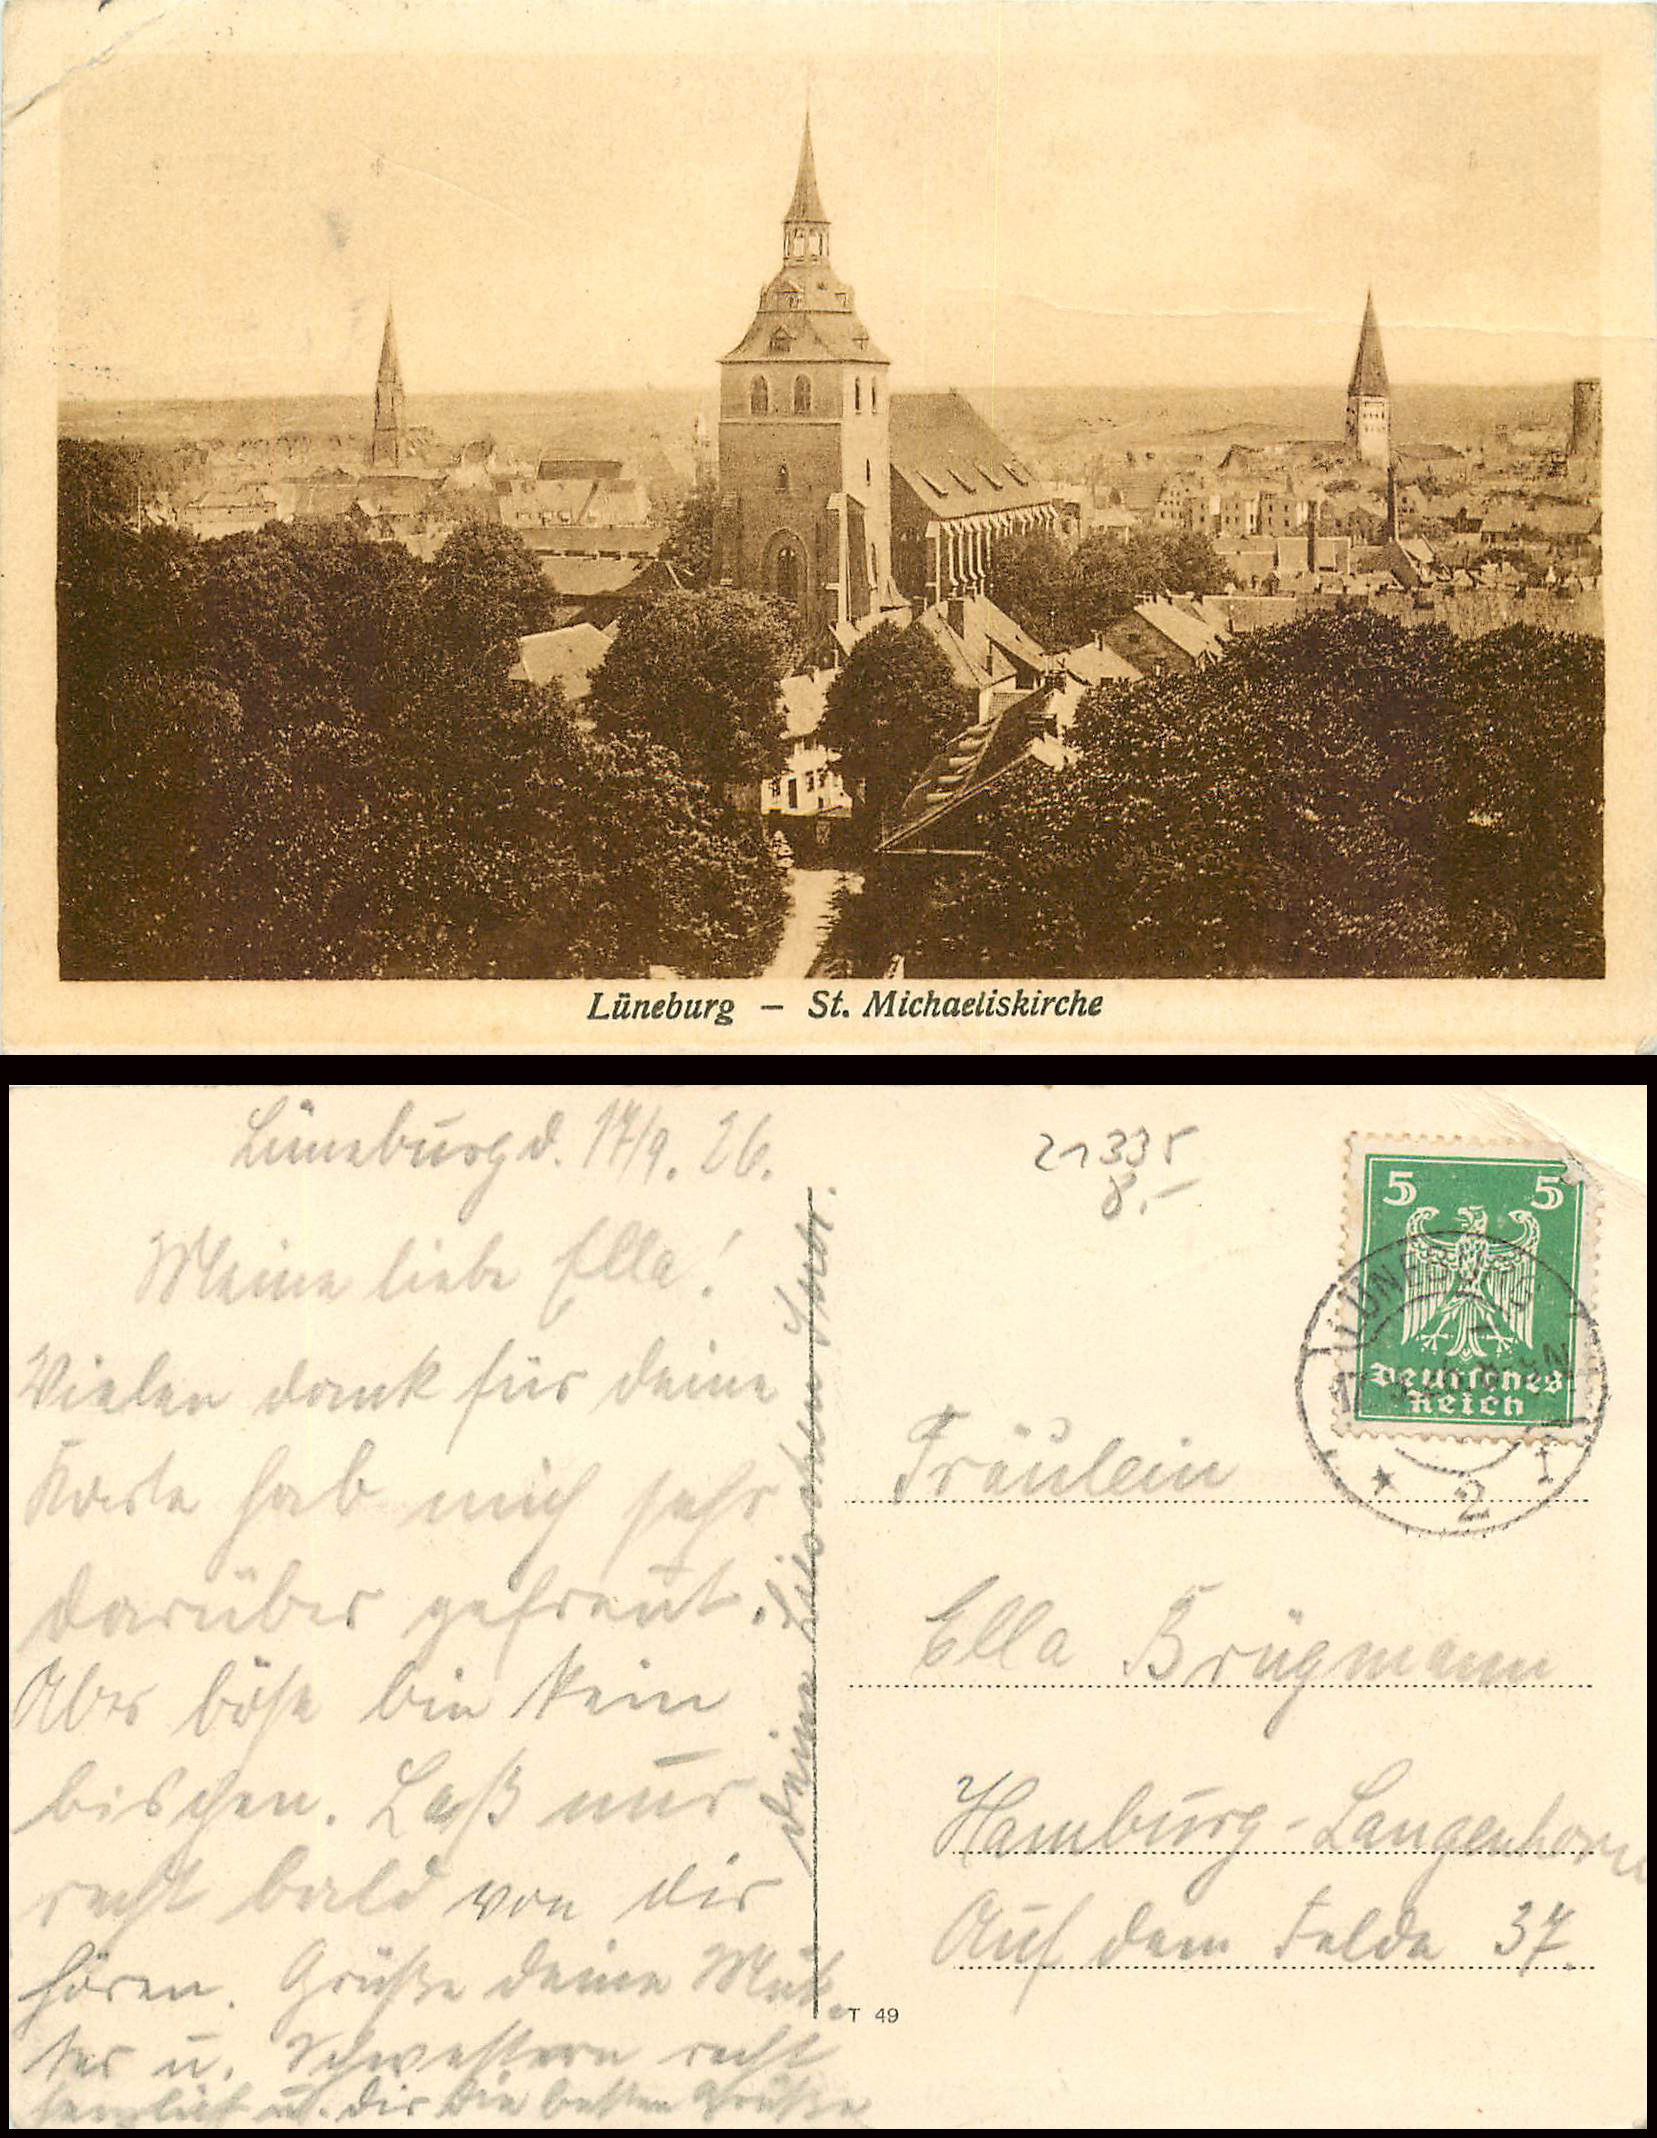 Lüneburg – St. Michaeliskirche
Lüneburg d. 17/9. 26.
Meine liebe Ella!
Vielen dank für deine
Karte hab mich sehr
darüber gefreut.
Aber böse bin kein
bischen. Laß nur
recht bald von dir
hören. Grüße deine Mut-
ter u. Schwestern recht
herzlich u. dir die besten Grüße
deine
21335
8.-
5 5
Deutsches
Reich
LÜNEBURG
* 2
Fräulein
Ella Brügmann
Hamburg-Langenhorn
Auf dem Felde 37.
T 49